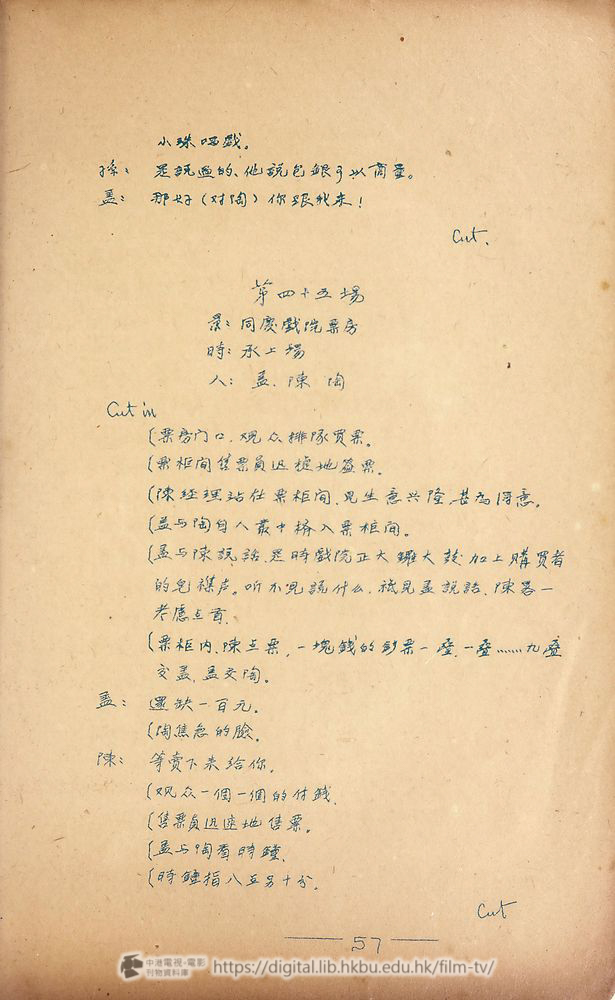 小珠唱戲。
孫：是說過的、他說包銀可以商量。
孟：那好（对陶）你跟我来！
Cut.
第四十五場
景：同慶戲院票房
時：承上場
人：孟、陳 陶
Cut in
（票房门口、观众排隊買票。
（票柜间售票員迅 地 票。
（陳经理站在票柜间、見生意兴隆、甚為得意。
（孟与陶自人叢中擠入票柜间。
（孟与陳說話是時戲院正大鑼大鼓加上購買者
的 声。听不見說什么、祗見孟說話、陳畧一
考慮点首。
（票柜内、陳点票、一塊錢的鈔票一疊、一疊……九疊
交孟、孟交陶。
孟：還缺一百元。
（陶焦急的臉。
陳：等賣下来给你。
（观众一個一個的付錢、
（售票員迅速地售票。
（孟与陶看時鐘、
（時鐘指八点另十分、
Cut
57
中港電視·電影
刊物資料庫
https://digital.lib.hkbu.edu.hk/film-tv/